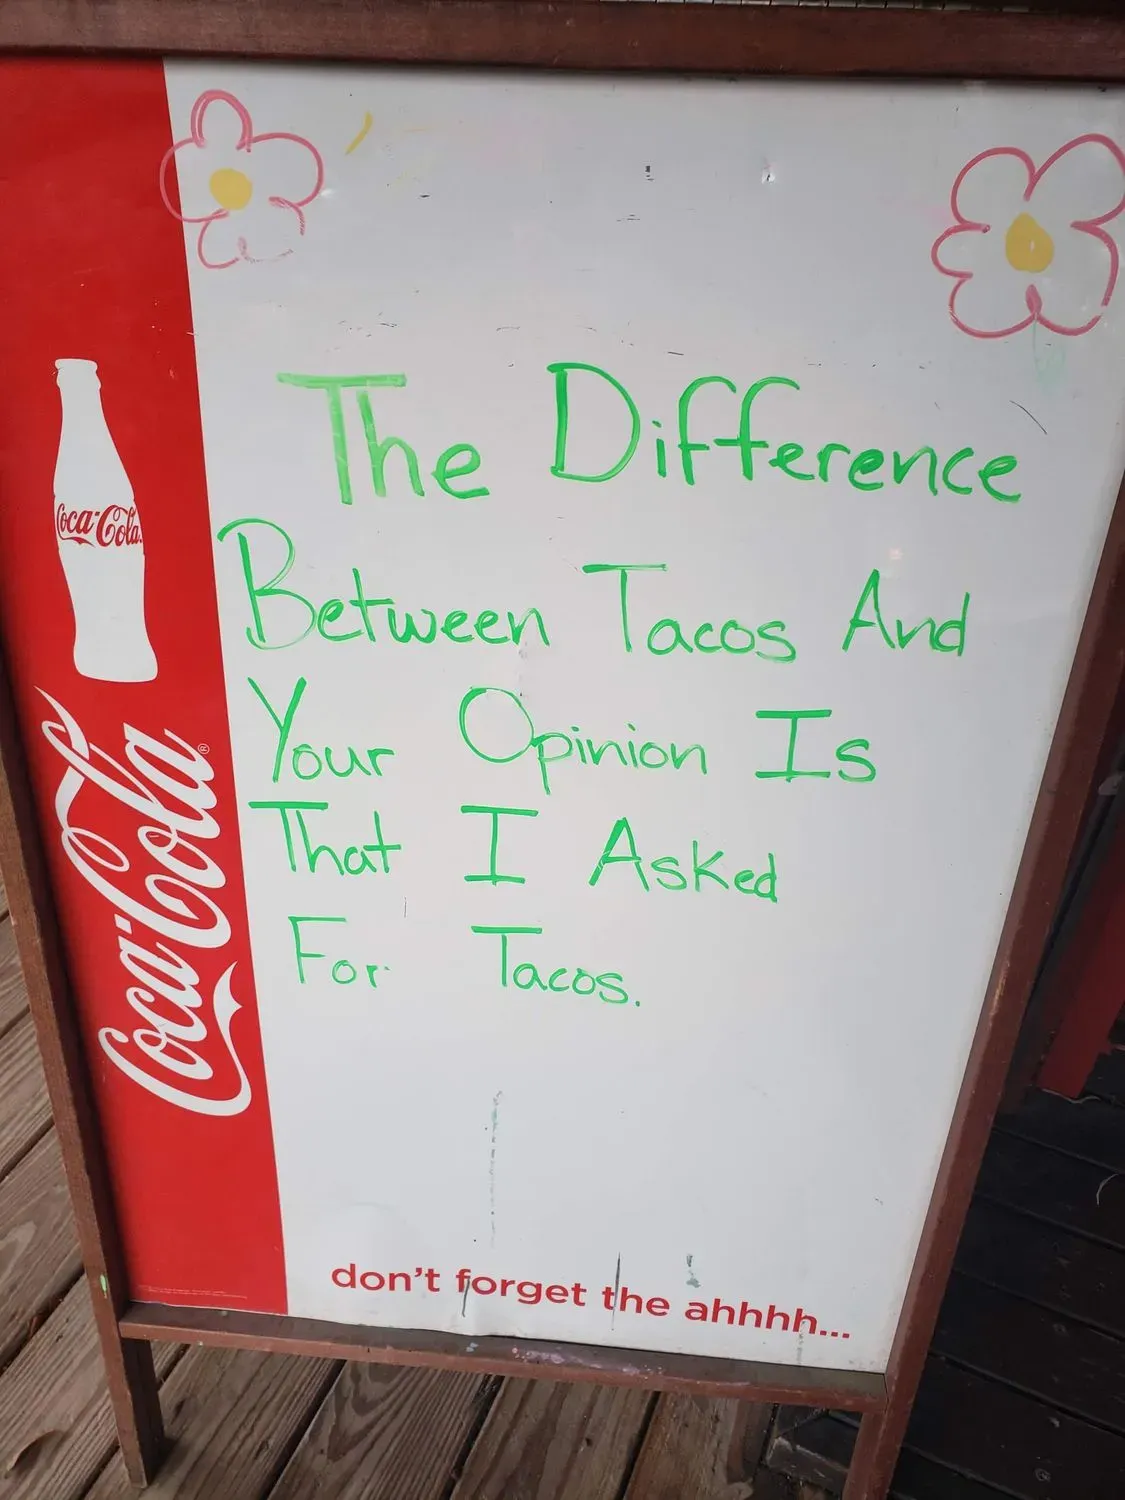 The Difference
Between Tacos And
Your Opinion Is
That I Asked
For Tacos.
Coca-Cola
Coca-Cola®
don't forget the ahhhh...